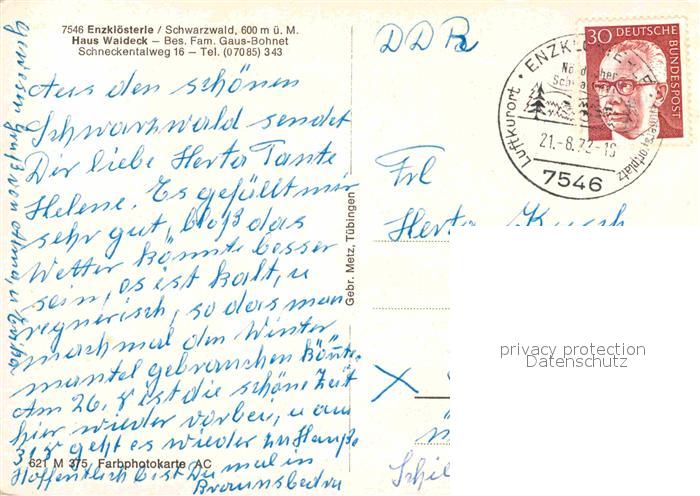 7546 Enzklösterle / Schwarzwald, 600 m ü. M.
Haus Waldeck – Bes. Fam. Gaus-Bohnet
Schneckentalweg 16 – Tel. (07085) 343
Aus den schönen
Schwarzwald sendet
Dir liebe Herta Tante
Helene. Es gefällt mir
sehr gut, bloß das
Wetter könnte besser
sein, es ist kalt, u
regnerisch, so das man
machmal den Winter
mantel gebrauchen könnte.
Am 26. 8 ist die schöne Zeit
hier wieder vorbei, u am
31 8 geht es wieder zu Hauße
Hoffentlich bist Du mal in
Braunsbedra
gewesen Gruß von
621 M 375 Farbphotokarte AC
Gebr. Metz, Tübingen
DDR
30 DEUTSCHE BUNDESPOST
Luftkurort · ENZKLÖSTERLE
21.-8.72-16
7546
Frl
Herta
privacy protection
Datenschutz